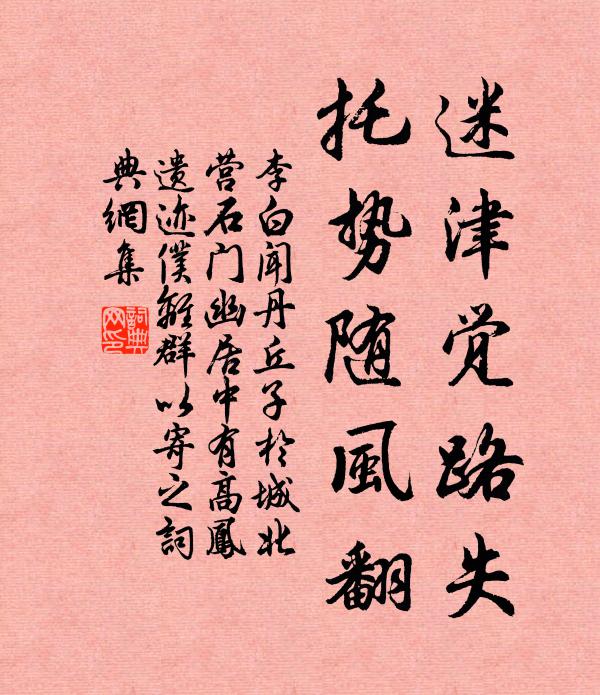 迷津觉路失
托势随風翻
李白闻丹丘子於城北
营石门幽居中有高鳳
遗迹僕離群以寄之詞
典網集
詞典网印